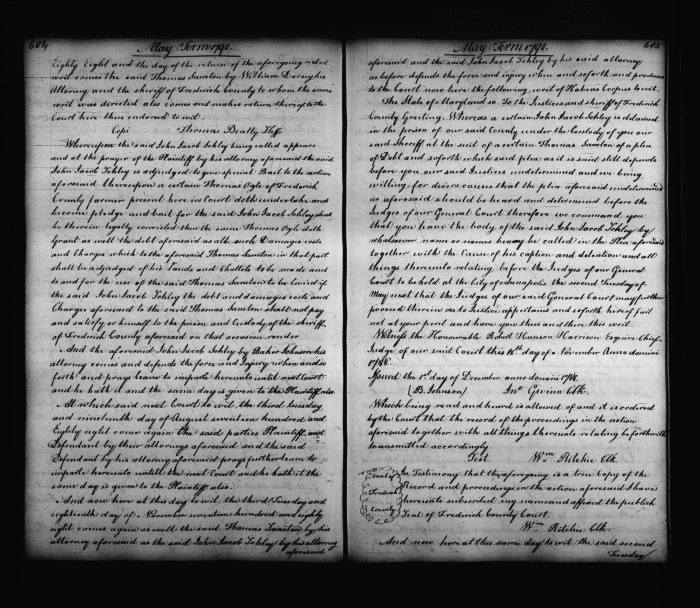 604
May Term 1790.
Eighty Eight and the day of the return of the aforegoing recited
writ comes the said Thomas Santon by William Dorsey his
Attorney and the sheriff of Frederick County to whom the same
writ was directed also comes and makes return thereof to the
Court here thus endorsed to wit.
Cepi Thomas Beatty Shff
Whereupon the said John Jacob Schley being called appears
and at the prayer of the Plaintiff by his attorney aforesaid the said
John Jacob Schley is adjudged to give special Bail to the action
aforesaid thereupon a certain Thomas Ogle of Frederick
County farmer present here in Court doth undertake and
become pledge and bail for the said John Jacob Schley shall
be therein legally convicted then the same Thomas Ogle doth
Grant as well the debt aforesaid as all such Damages costs
and Charges which to the aforesaid Thomas Santon in that part
shall be adjudged of his Lands and Chattels to be made and
to and for the use of the said Thomas Santon to be levied if
the said John Jacob Schley the debt and damages costs and
Charges aforesaid to the said Thomas Santon shall not pay
and satisfy or himself to the prison and Custody of the sheriff
of Frederick County aforesaid on that occasion render
And the aforesaid John Jacob Schley by Baker Johnson his
attorney comes and defends the force and Injury when and so
forth and prays leave to imparle hereunto until next Court
and he hath it and the same day is given to the Plaintiff also
At which said next Court to wit the third Tuesday
and nineteenth day of August seventeen hundred and
Eighty eight come again the said parties Plaintiff and
Defendant by their attorneys aforesaid and the said
Defendant by his attorney aforesaid prays further leave to
imparle hereunto until the next Court and he hath it the
same day is given to the Plaintiff also.
And now here at this day to wit, the third Tuesday and
eighteenth day of November seventeen hundred and eighty
eight comes again as well the said Thomas Santon by his
attorney aforesaid as the said John Jacob Schley by his attorney
aforesaid
605
May Term 1790.
aforesaid and the said John Jacob Schley by his said attorney
as before defends the force and injury when and so forth and produces
to the Court now here the following writ of Habeas Corpus to wit.
The State of Maryland so. To the Justices and sheriff of Frederick
County Greeting. Whereas a certain John Jacob Schley is detained
in the prison of our said County under the Custody of you our
said Sheriff at the suit of a certain Thomas Santon of a plea
of Debt and so forth which said plea as it is said still depends
before you our said Justices undetermined and we being
willing for divers causes that the plea aforesaid undetermined
as aforesaid should be heard and determined before the
Judges of our General Court therefore we command you
that you have the body of the said John Jacob Schley by
whatsoever name or names he may be called in the Plea aforesaid
together with the Cause of his caption and detention and all
things thereunto relating before the Judges of our General
Court to be held at the City of Annapolis the second Tuesday of
May next that the Judges of our said General Court may further
proceed therein as to Justice appertains and so forth hereof fail
not at your peril and have you then and there this writ.
Witness the Honourable Robert Hanson Harrison Esquire Chief
Judge of our said Court this 18th day of November Anno domini
1788.
Issued the 1st day of December anno domini 1788.
(B. Johnson) Jno Gwinn Clk.
Which being read and heard is allowed of and it is ordered
by the Court that the record of the proceedings in the action
aforesaid together with all things thereunto relating be forthwith
transmitted accordingly
Test Wm Ritchie Clk.
Frederick County
In Testimony that the aforegoing is a true Copy of the
Record and proceedings in the action aforesaid I have
hereunto subscribed my name and affixed the publick
Seal of Frederick County Court.
Wm Ritchie Clk.
And now here at this same day to wit the said second
Tuesday